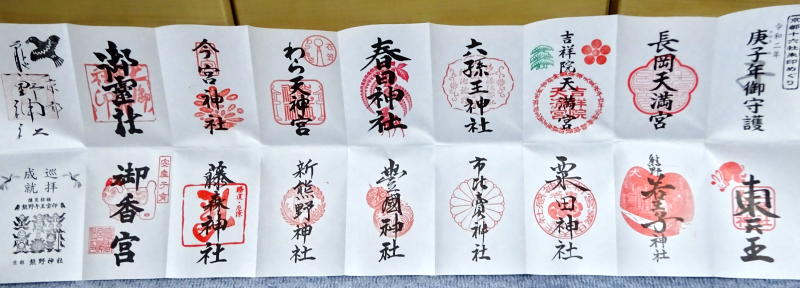 京都十六社朱印めぐり
令和二年
庚子年御守護
長岡天満宮
吉祥院
天満宮
六孫王神社
春日神社
わら天神宮
今宮神社
御霊社
京都
熊野神社
東天王
熊野
若王子
神社
粟田神社
市比賣神社
豊國神社
新熊野神社
藤森神社
勝運・馬像
御香宮
安産子育
巡拝
成就
熊野牛王宝印
京都 熊野神社